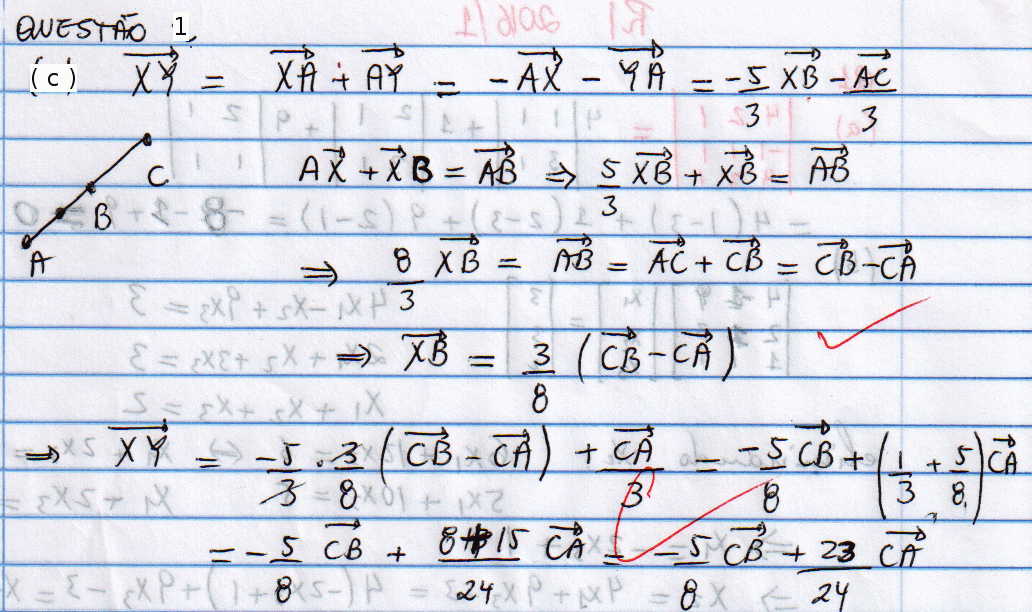 QUESTÃO 1.
(c) \overrightarrow{XY} = \overrightarrow{XA} + \overrightarrow{AY} = -\overrightarrow{AX} - \overrightarrow{YA} = \frac{-5}{3} \overrightarrow{XB} - \frac{\overrightarrow{AC}}{3}
A\overrightarrow{X} + \overrightarrow{X}B = \overrightarrow{AB} ⇒ \frac{5}{3} \overrightarrow{XB} + \overrightarrow{XB} = \overrightarrow{AB}
C
B
A
⇒ \frac{8}{3} \overrightarrow{XB} = \overrightarrow{AB} = \overrightarrow{AC} + \overrightarrow{CB} = \overrightarrow{CB} - \overrightarrow{CA}
⇒ \overrightarrow{XB} = \frac{3}{8} (\overrightarrow{CB} - \overrightarrow{CA})
⇒ \overrightarrow{XY} = \frac{-5}{3} . \frac{3}{8} (\overrightarrow{CB} - \overrightarrow{CA}) + \frac{\overrightarrow{CA}}{3} = \frac{-5}{8} \overrightarrow{CB} + (\frac{1}{3} + \frac{5}{8}) \overrightarrow{CA}
= -\frac{5}{8} \overrightarrow{CB} + \frac{8+15}{24} \overrightarrow{CA} = -\frac{5}{8} \overrightarrow{CB} + \frac{23}{24} \overrightarrow{CA}